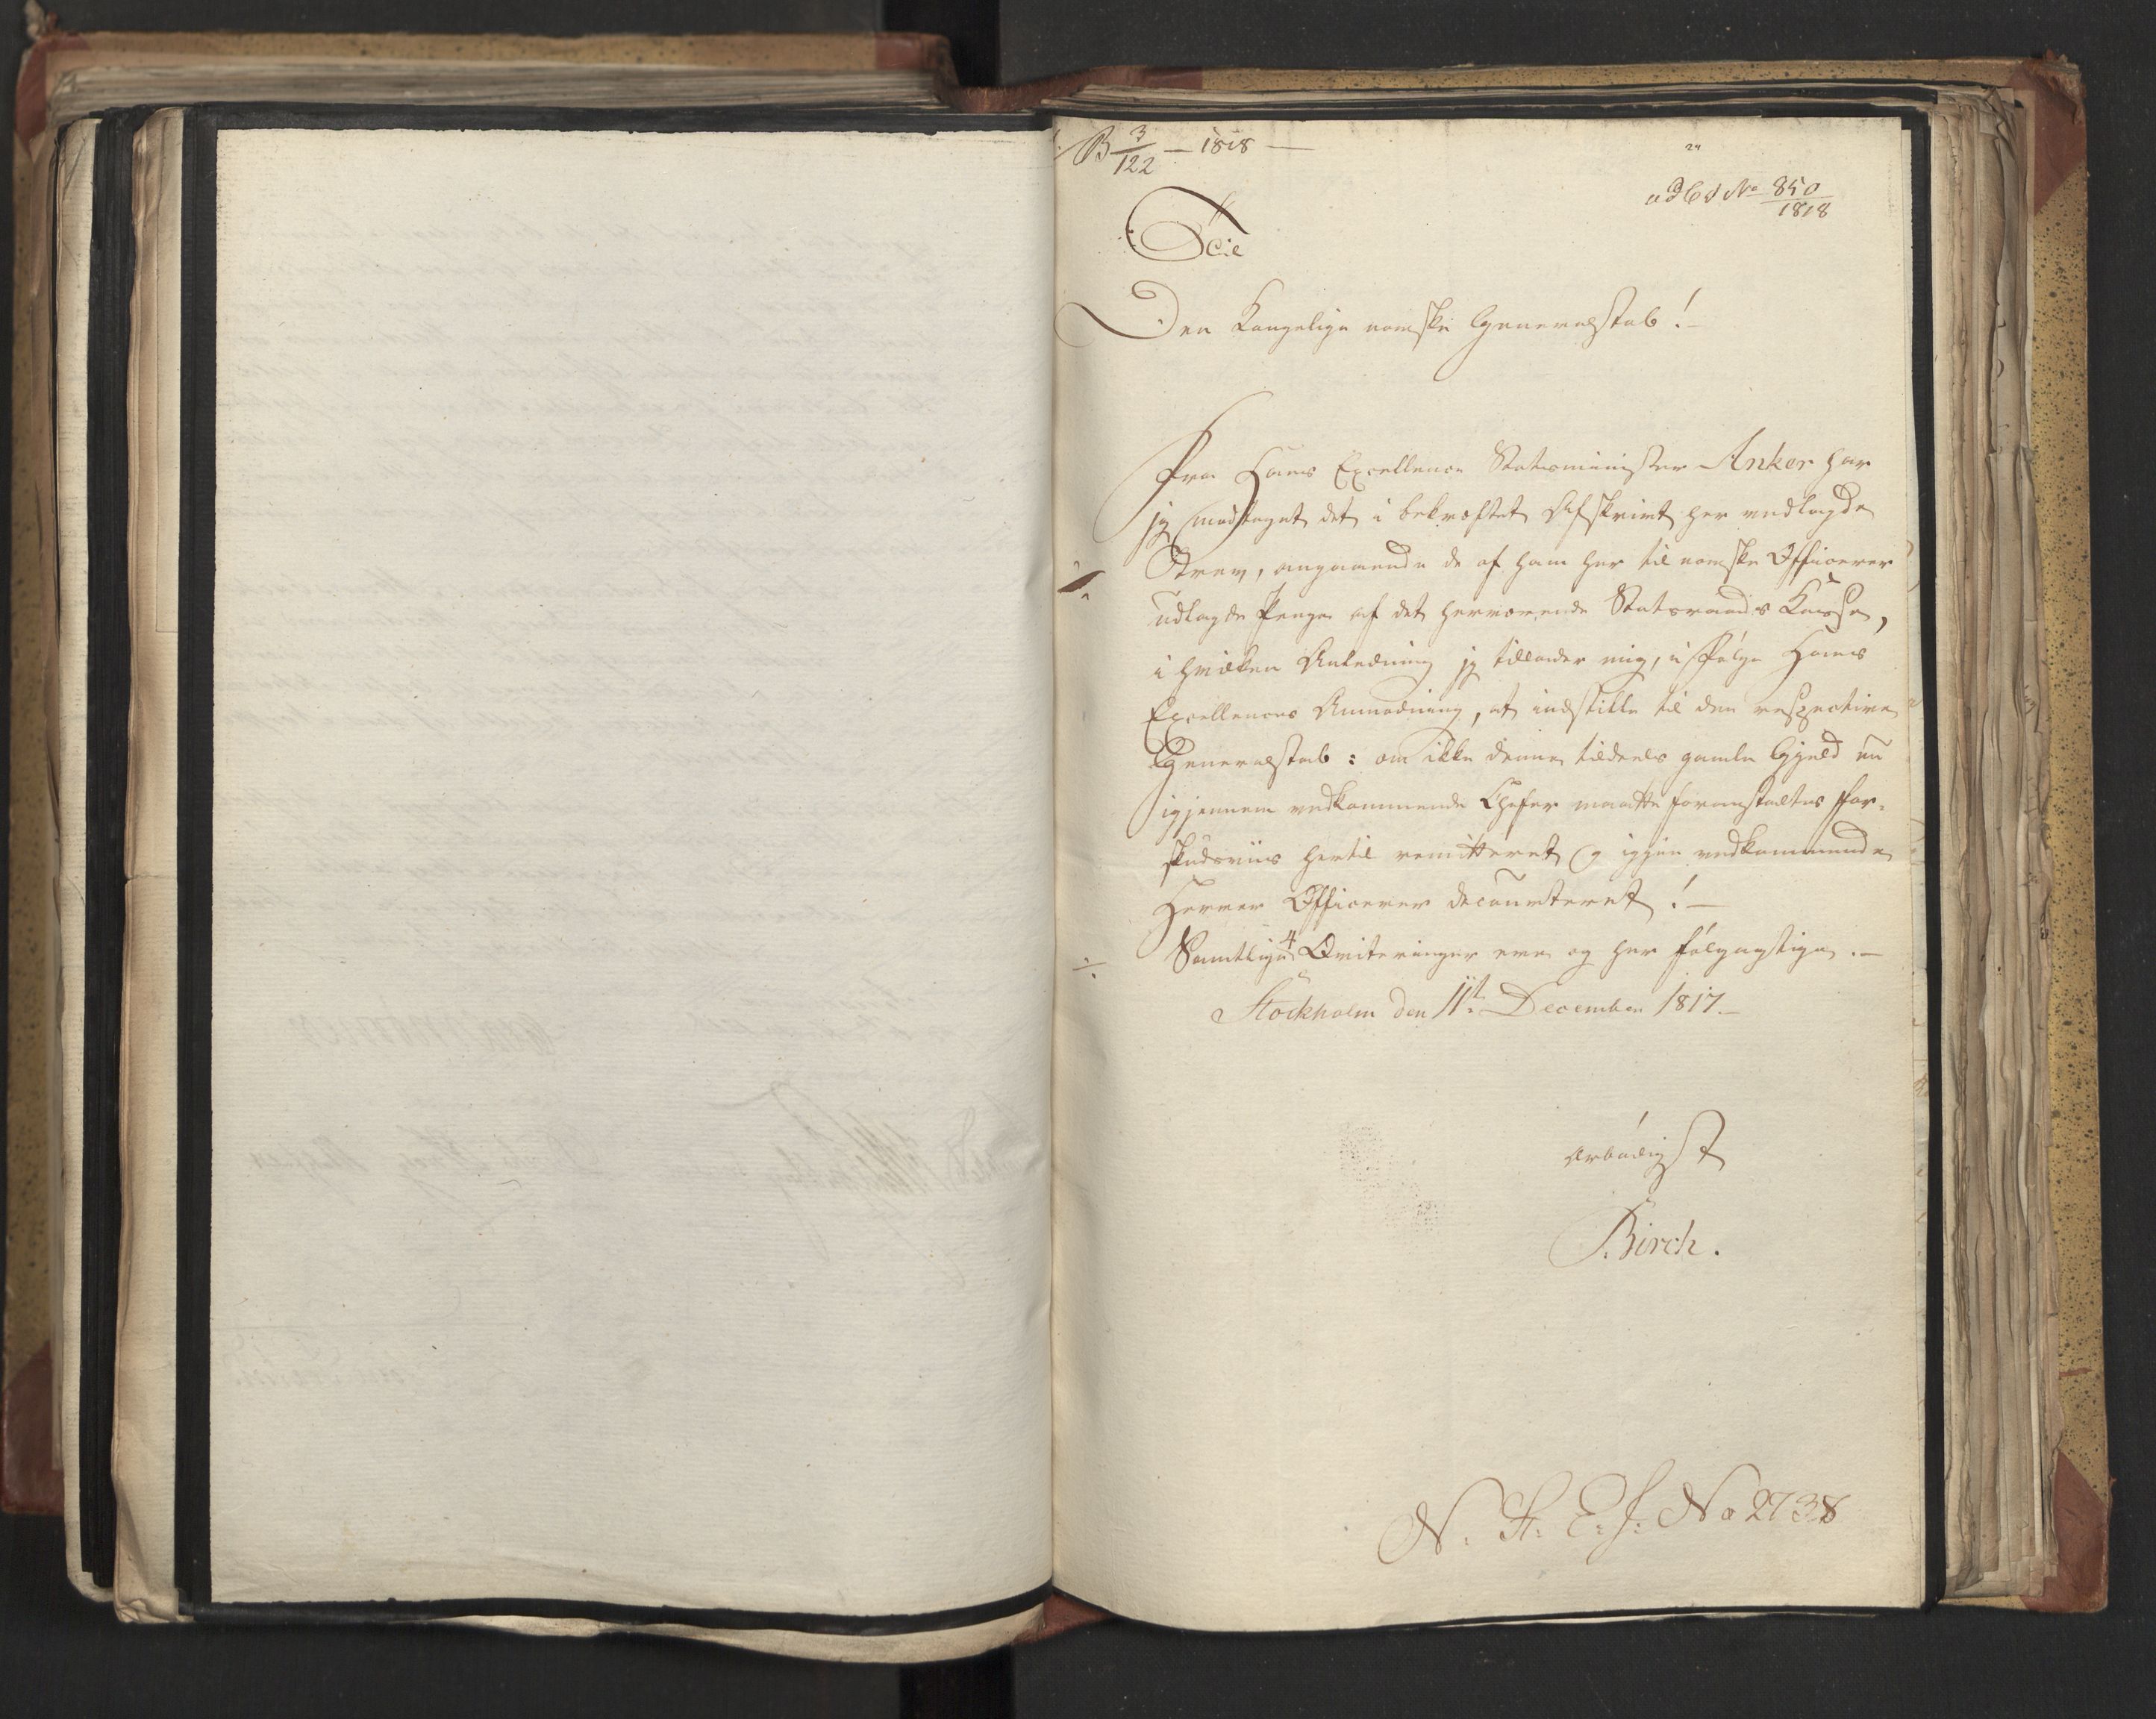 B 3/122 – 1818 –
ad No 850/1818
Til
Den Kongelige norske Generalstab! –
Fra Hans Excellence Statsminister Anker har
jeg modtaget det i bekræftet Afskrivt her vedlagde
Brev, angaaende de af ham her til norske Officerer
udlagde Penge af det herværende Statsraads Kasse,
i hvilken Anledning jeg tillader mig, i Følge Hans
Excellences Anmodning, at indstille til den respective
Generalstab: om ikke denne tildeels gamle Gjæld nu
igjennem vedkommende Chefer maatte foranstaltes for-
skudsviis hertil remitteret og igjen vedkommende
Herrer Officerer decourteret! –
Samtlige 4 Qviteringer ere og her følgagtige. –
Stockholm den 11te December 1817. –
ærbødigst
Birch.
N. St. E. J. No 2738